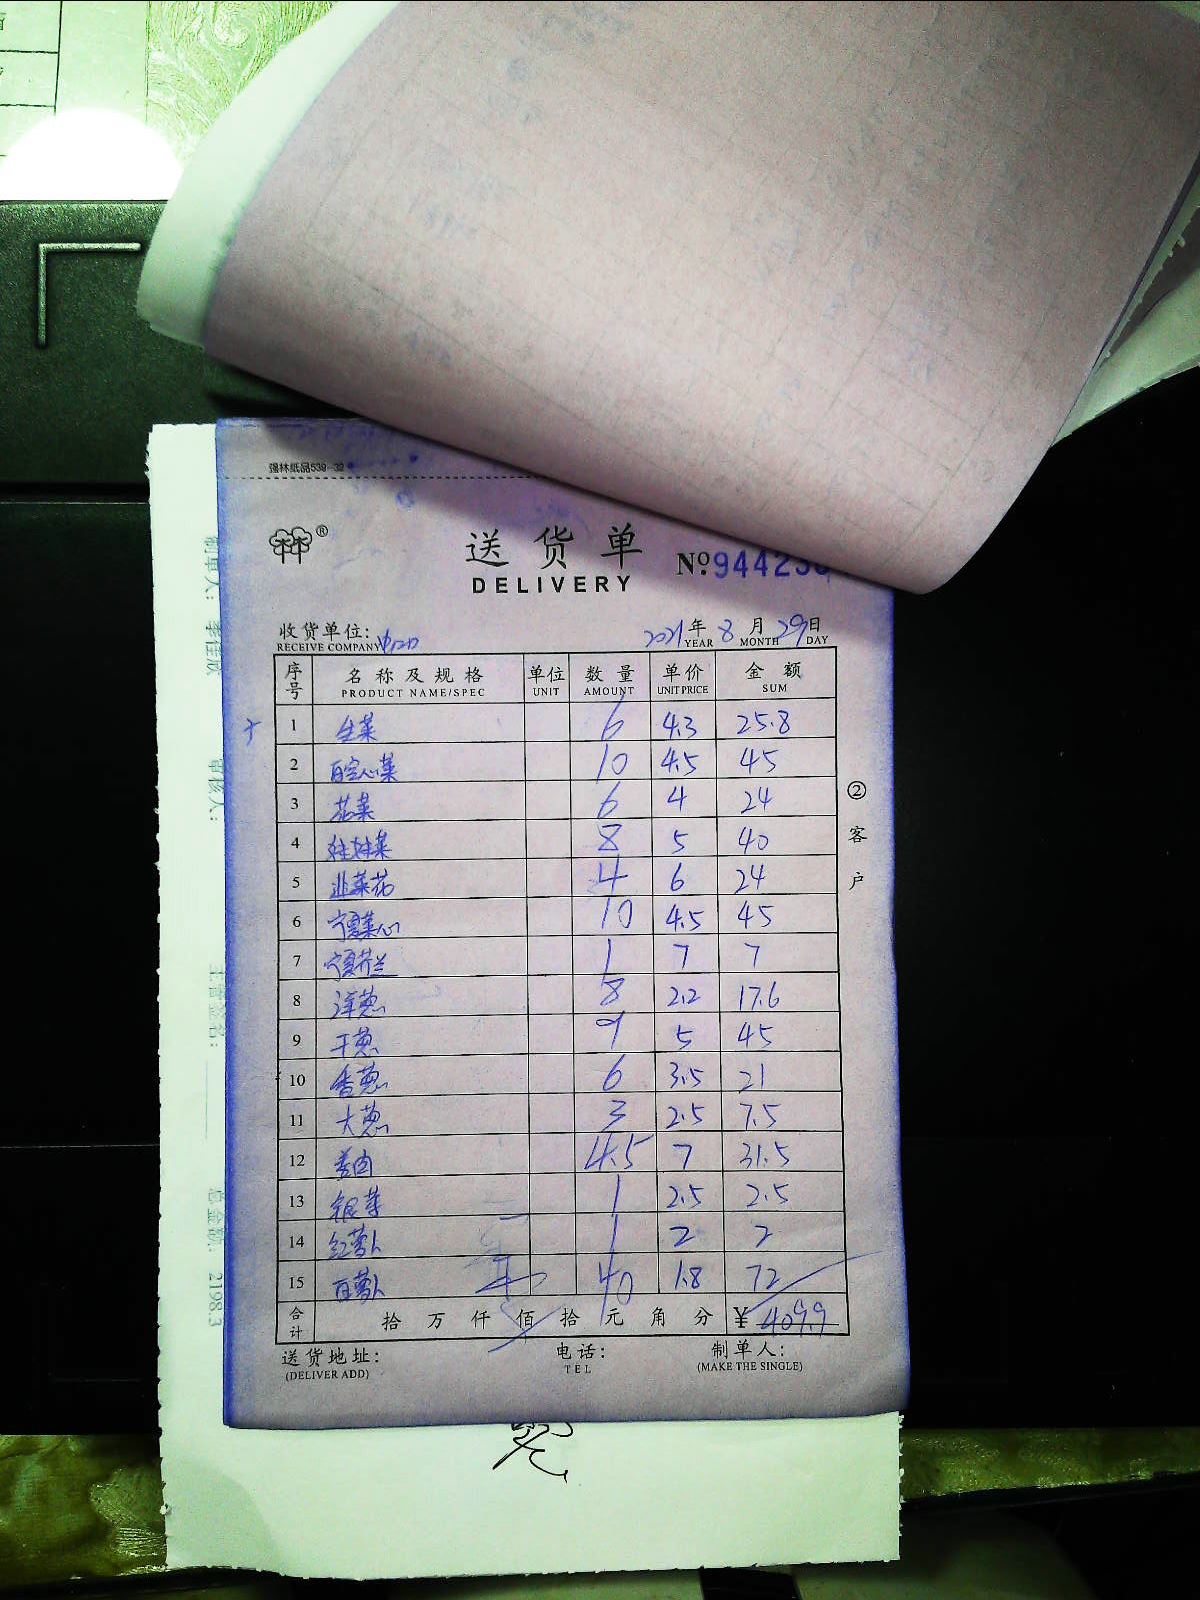 强林纸品539-32
送货单
DELIVERY
№
收货单位:
RECEIVE COMPANY
2021年8月29日
YEAR MONTH DAY
序号 名称及规格 单位 数量 单价 金额
PRODUCT NAME/SPEC UNIT AMOUNT UNIT PRICE SUM
1 生菜 6 4.3 25.8
2 白空心菜 10 4.5 45
3 花菜 6 4 24
4 娃娃菜 8 5 40
5 韭菜花 4 6 24
6 宁夏菜心 10 4.5 45
7 宁夏芥兰 1 7 7
8 洋葱 8 2.2 17.6
9 干葱 9 5 45
10 香葱 6 3.5 21
11 大葱 3 2.5 7.5
12 姜肉 4.5 7 31.5
13 银芽 1 2.5 2.5
14 红萝卜 1 2 2
15 白萝卜 40 1.8 72
合计 拾 万 仟 佰 拾 元 角 分 ¥ 409.9
送货地址: 电话: 制单人:
(DELIVER ADD) TEL (MAKE THE SINGLE)
②客户
制单人:
审核人:
主管签名:
总金额: 2198.3